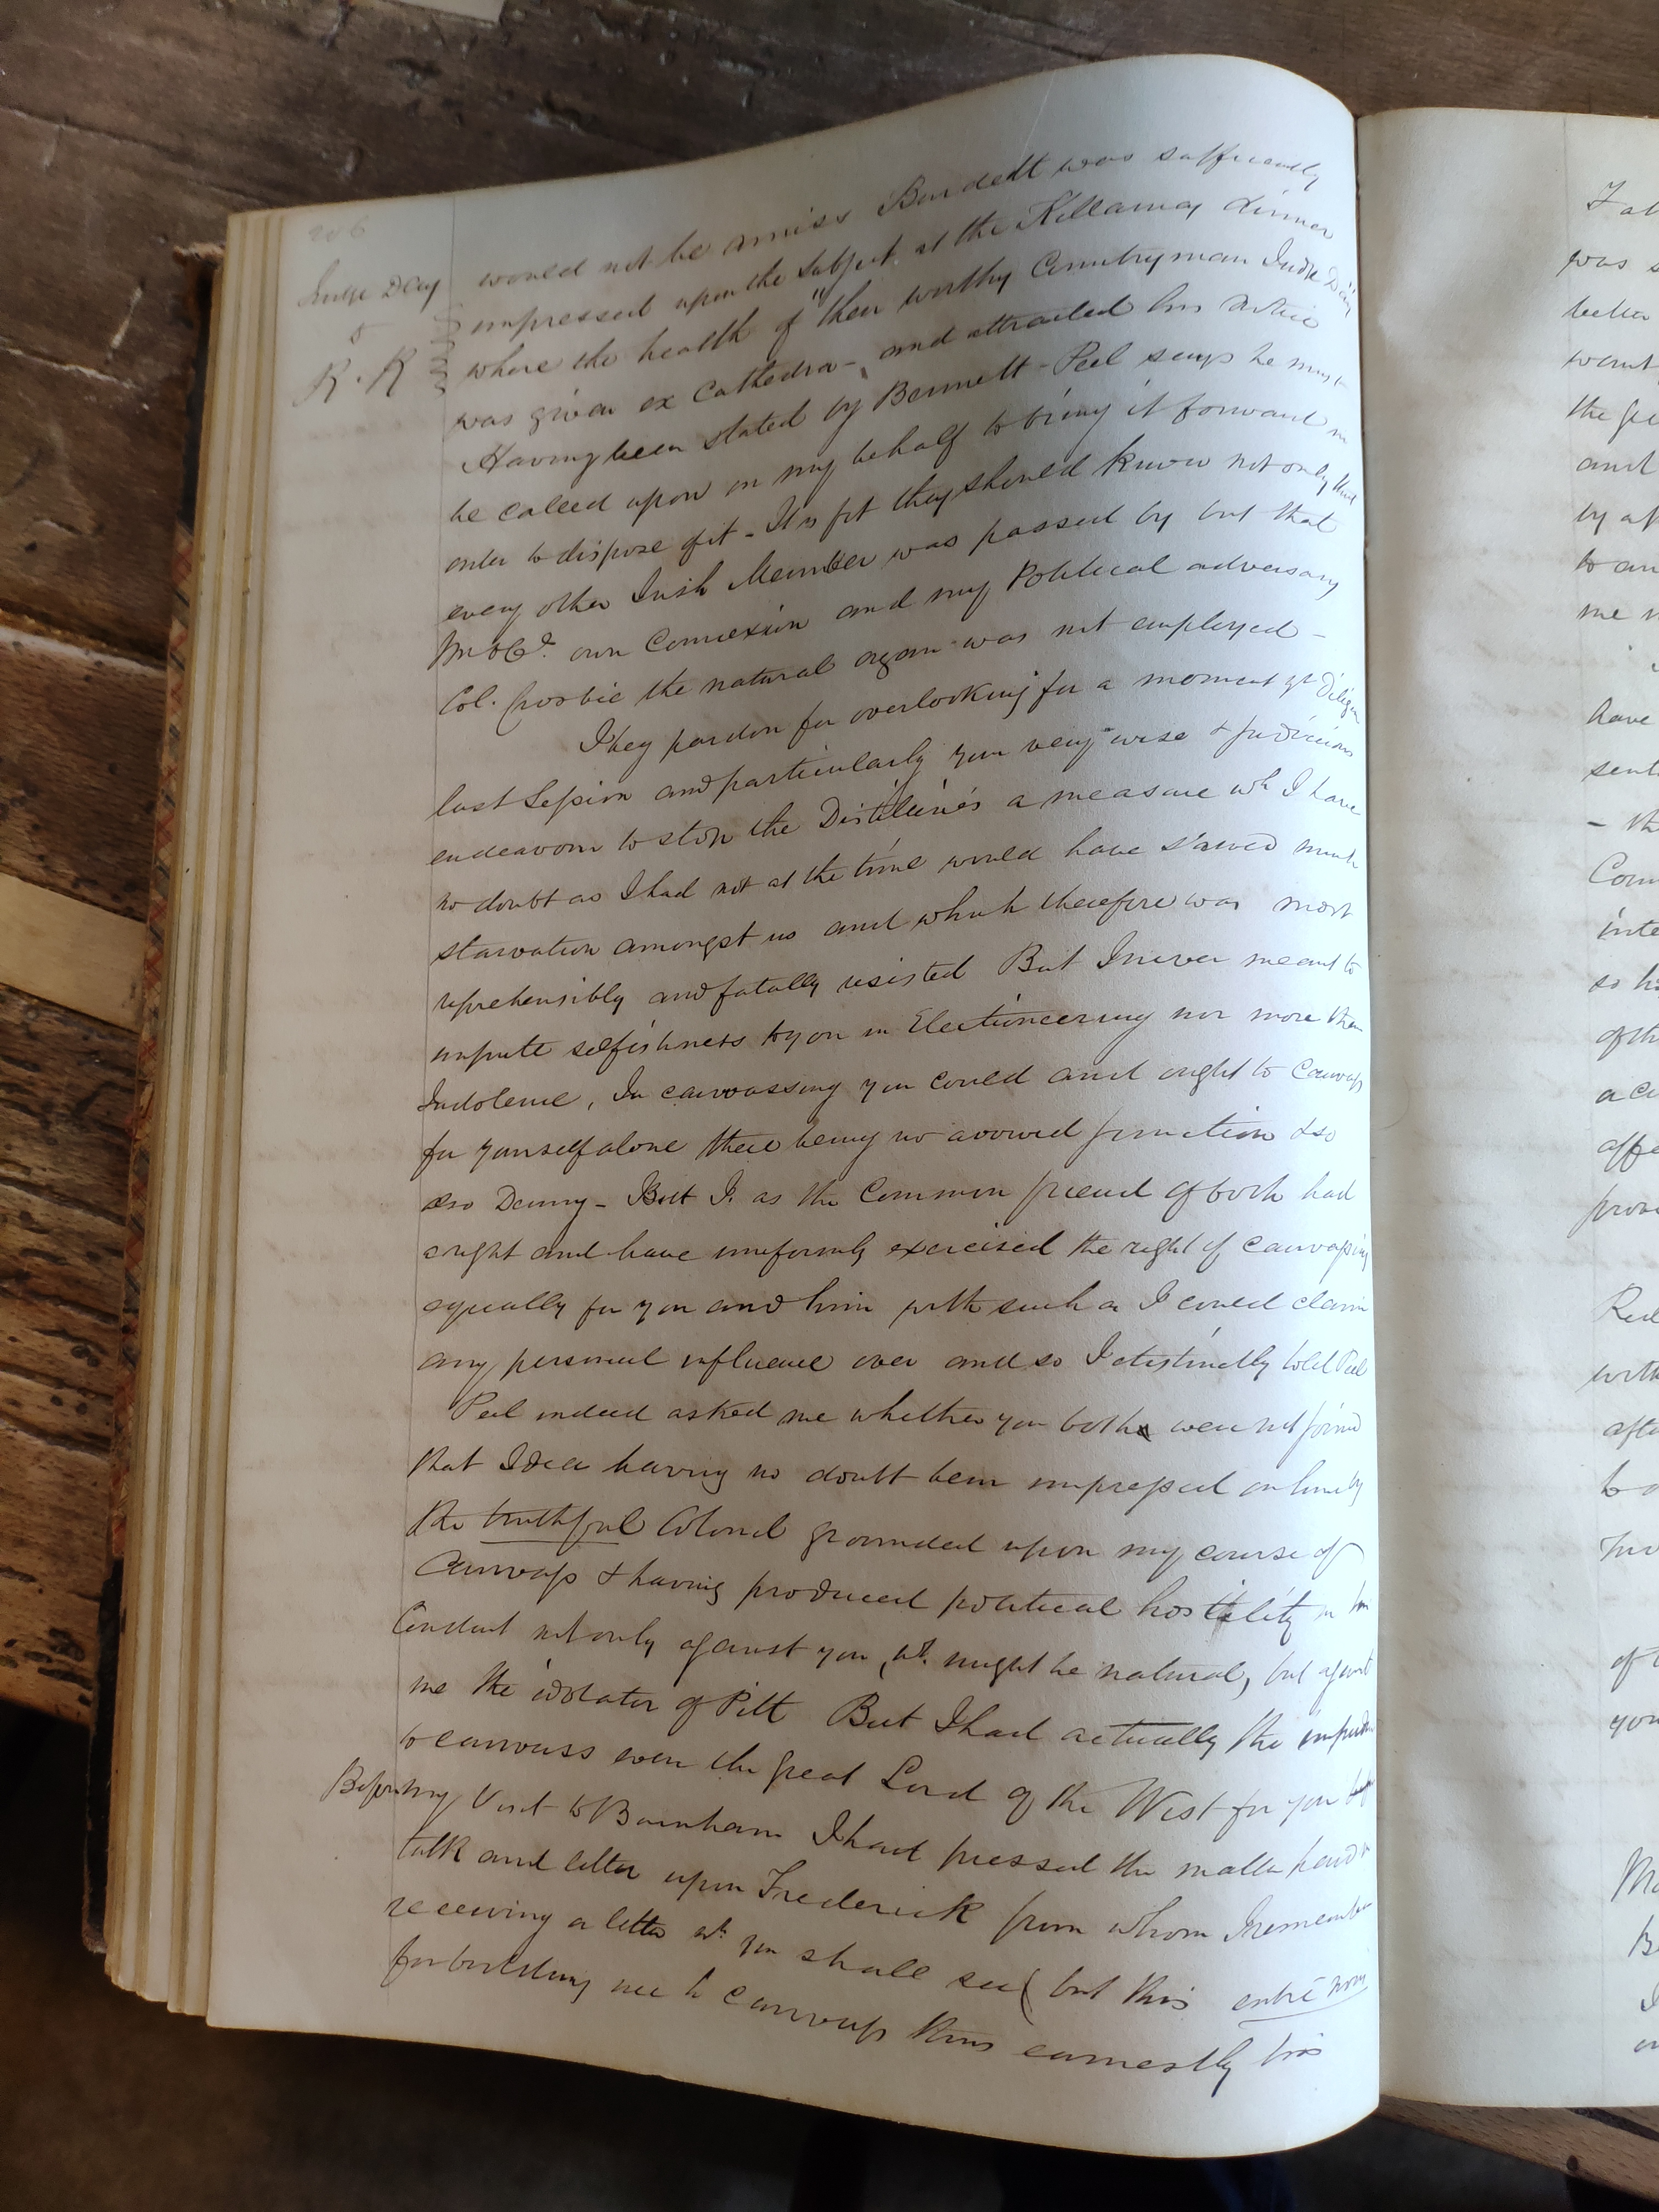 206
Judge Day
to
R. R
would not be amiss Burdett was sufficiently
impressed upon the subject at the Killarney dinner
where the health of "their worthy Countryman Judge Day"
was given ex Cathedra - and attracted his notice
Having been stated by Bennett - Peel says he must
be called upon on my behalf to bring it forward in
order to dispose of it - It is fit they should know not only that
every other Irish Member was passed by but that
own Connexion and my Political adversary
Col. Crosbie the natural organ was not employed -
I beg pardon for overlooking for a moment yr Diligence
last Session and particularly your very wise & judicious
endeavour to stop the Distilleries a measure wh I have
no doubt as I had not at the time would have saved much
starvation amongst us and which therefore was most
reprehensibly and fatally resisted But I never meant to
impute selfishness to you in Electioneering nor more than
Indolence, In canvassing you could and ought to Canvass
for yourself alone there being no avowed junction & so
also Denny - But I as the Common friend of both had
a right and have uniformly exercised the right of canvassing
equally for you and him with such as I could claim
any personal influence over and so I distinctly told Peel
Peel indeed asked me whether you both were not joined
that Idea having no doubt been impressed on him by
the truthful Colonel grounded upon my course of
Canvass & having produced political hostility in his
Conduct not only against you, wh. might be natural, but against
me the idolator of Pitt But I had actually the impudence
to canvass even the great Lord of the West for you
Before my Visit to Burnham I had pressed the matter hard in
talk and letter upon Frederick from whom I remember
receiving a letter wh you shall see (but this entre nous
forbidding me to canvass thus earnestly his